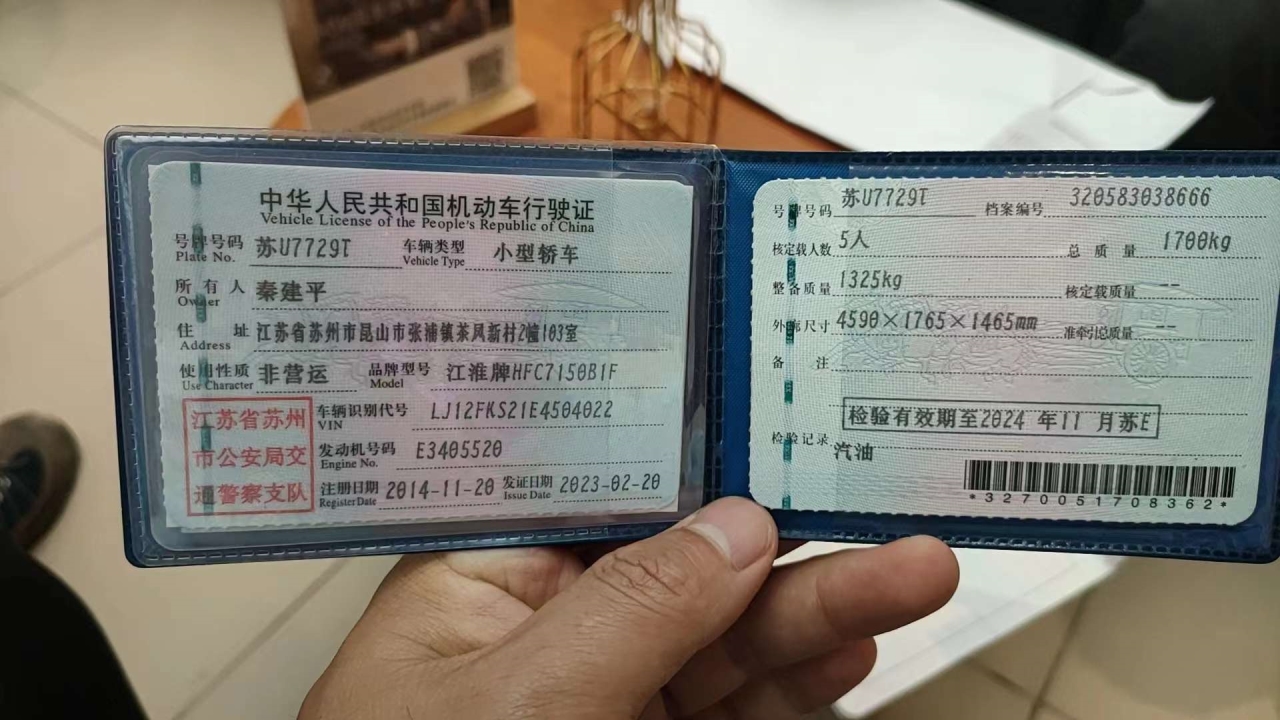 中华人民共和国机动车行驶证
Vehicle License of the People's Republic of China
号牌号码 苏U7729T 车辆类型 小型轿车
Plate No. Vehicle Type
所有人 秦建平
Owner
住址 江苏省苏州市昆山市张浦镇茶风新村2幢103室
Address
使用性质 非营运 品牌型号 江淮牌HFC7150B1F
Use Character Model
江苏省苏州
市公安局交
通警察支队
车辆识别代号 LJ12FKS21E4504022
VIN
发动机号码 E3405520
Engine No.
注册日期 2014-11-20 发证日期 2023-02-20
Register Date Issue Date
号牌号码 苏U7729T 档案编号 320583038666
核定载人数 5人 总质量 1700kg
整备质量 1325kg 核定载质量 --
外廓尺寸 4590×1765×1465mm 准牵引总质量 --
备注
检验有效期至2024年11月苏E
检验记录
汽油
*3270051708362*